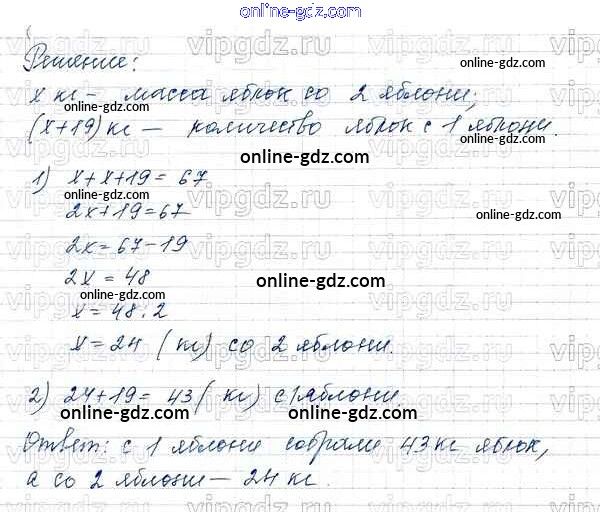 online-gdz.com
Решение:
online-gdz.com
х кг – масса яблок со 2 яблони;
(х+19) кг — количество яблок с 1 яблони.
online-gdz.com
online-gdz.com
1) х+х+19=67
online-gdz.com
2х+19=67
online-gdz.com
2х=67-19
2х = 48
online-gdz.com
online-gdz.com
х = 48:2
х = 24 (кг) со 2 яблони.
online-gdz.com
2) 24+19= 43 (кг) с 1 яблони
online-gdz.com
online-gdz.com
Ответ: с 1 яблони собрали 43 кг яблок,
а со 2 яблони — 24 кг.
online-gdz.com
vipgdz.ru